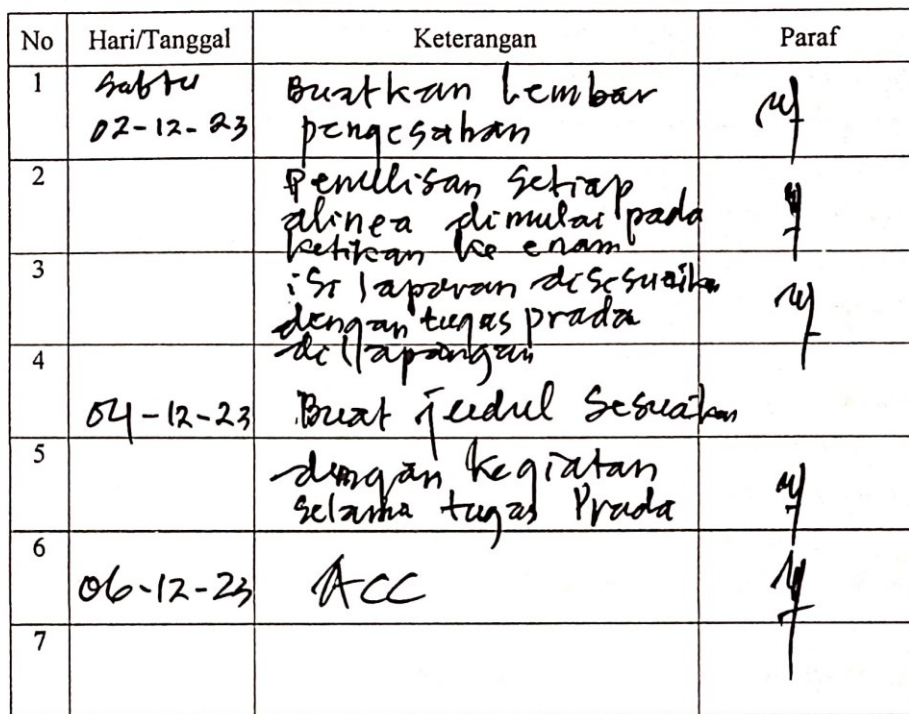 No Hari/Tanggal Keterangan Paraf
1 Sabtu Buatkan Lembar
02-12-23 pengesahan
2 Penulisan Setiap
alinea dimulai pada
ketikan ke enam
3 isi laporan disesuaikan
dengan tugas prada
4 di lapangan
04-12-23 Buat judul Sesuaikan
5 dengan kegiatan
selama tugas Prada
6
06-12-23 ACC
7